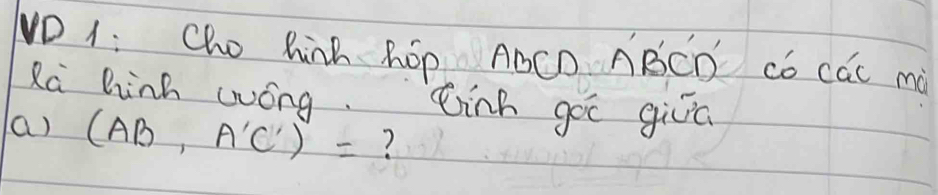 VD 1: Cho hình hộp ABCD.A'B'C'D' có các
là hình vuông. Tính góc giữa
a) (AB, A'C') = ?